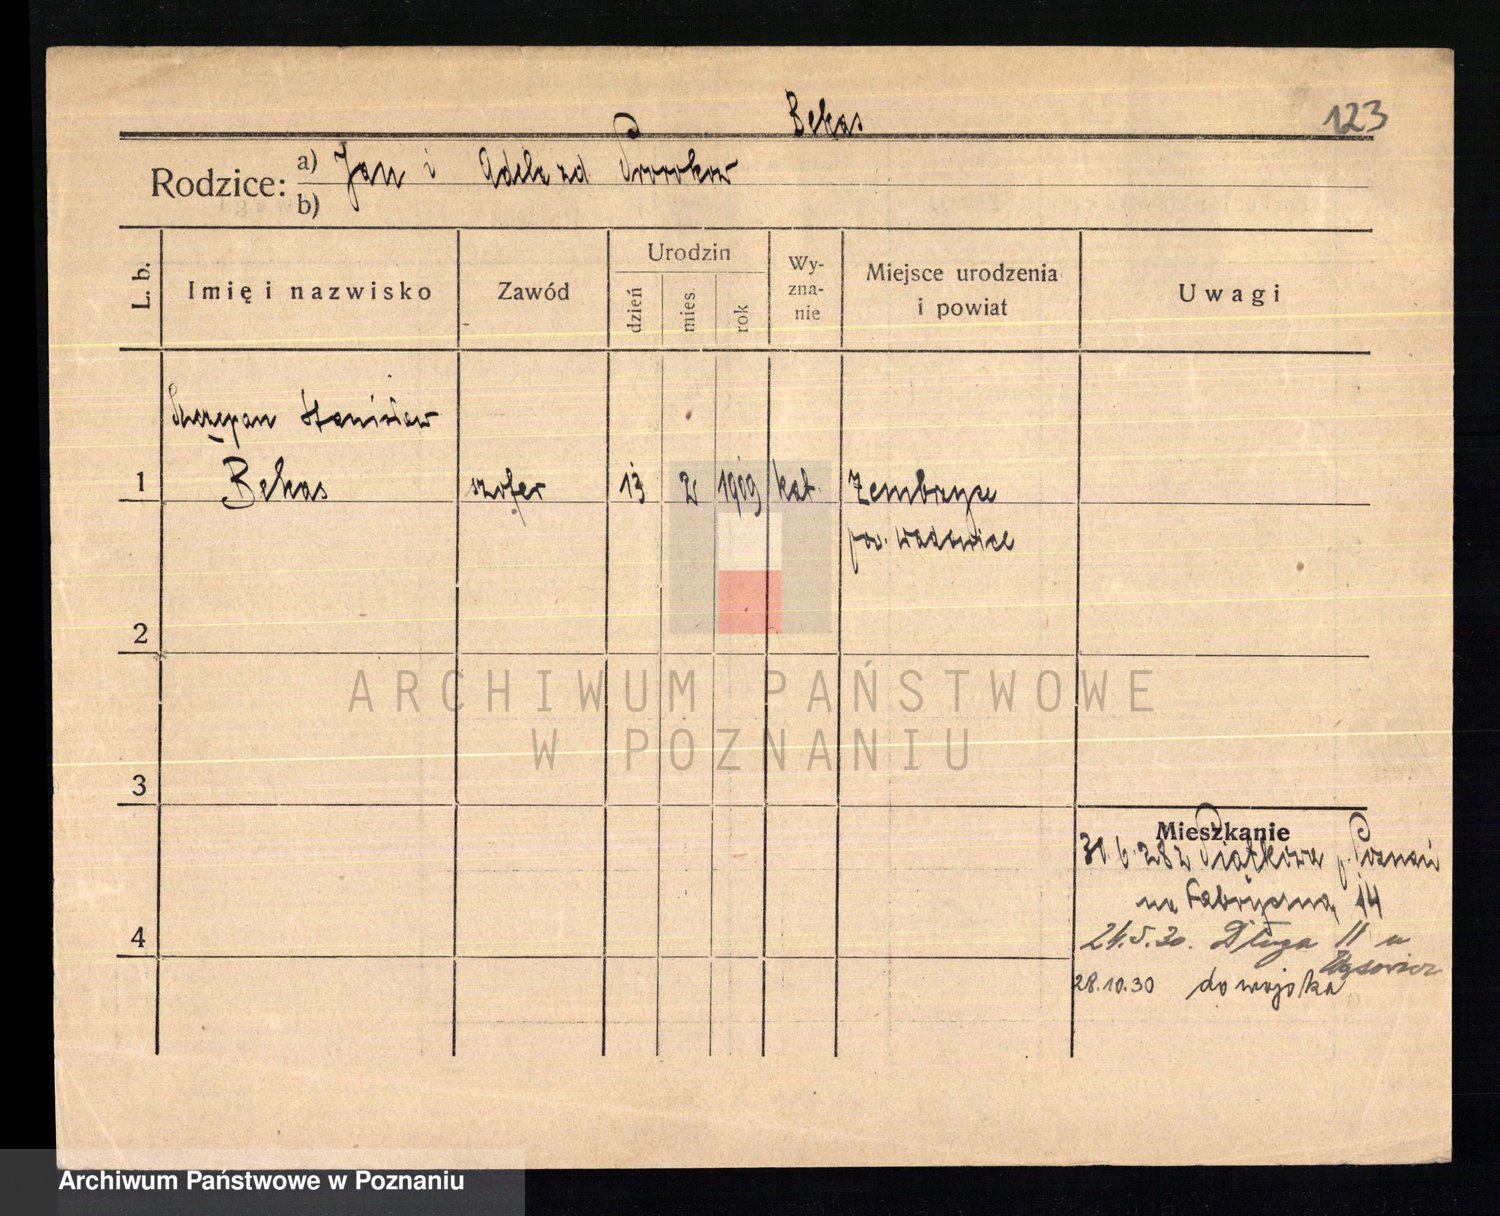 Bekas
123
Rodzice:
a) Jan i Adela zd
b)
L. b.
Imię i nazwisko
Zawód
Urodzin
dzień
mies.
rok
Wy-
zna-
nie
Miejsce urodzenia
i powiat
Uwagi
Szczepan Stanisław
1 Bekas szofer 13 2 1909 kat. Zembrzyce
pow. Wadowice
2
ARCHIWUM PAŃSTWOWE
W POZNANIU
3
Mieszkanie
Piątkowa p. Poznań
na Fabryczną 14
4
24.5.30. Długa 11 u
28.10.30 do wojska
Archiwum Państwowe w Poznaniu